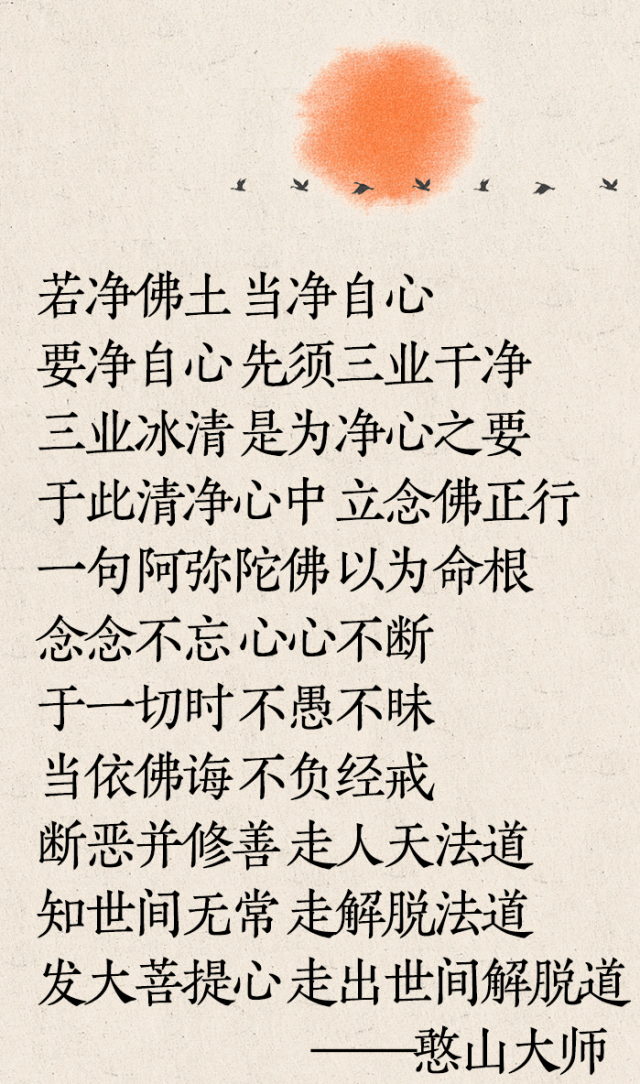 若净佛土 当净自心
要净自心 先须三业干净
三业冰清 是为净心之要
于此清净心中 立念佛正行
一句阿弥陀佛 以为命根
念念不忘 心心不断
于一切时 不愚不昧
当依佛诲 不负经戒
断恶并修善 走人天法道
知世间无常 走解脱法道
发大菩提心 走出世间解脱道
——憨山大师